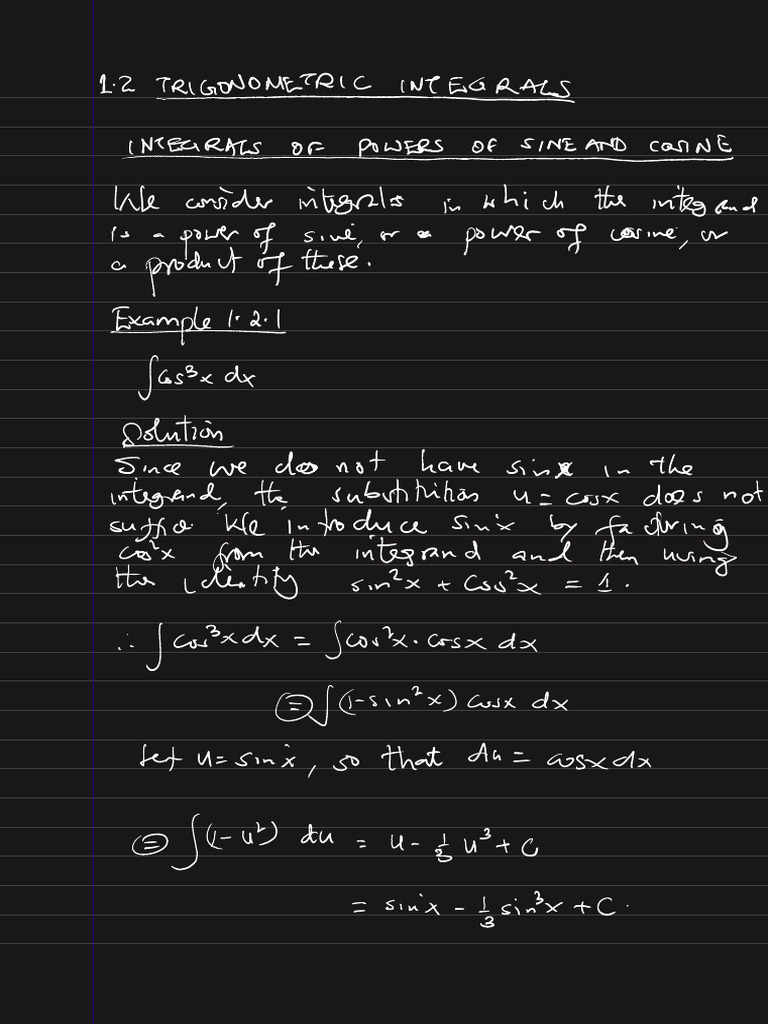 1.2 TRIGONOMETRIC INTEGRALS
INTEGRALS OF POWERS OF SINE AND COSINE
We consider integrals in which the integrand
is a power of sine, or a power of cosine, or
a product of these.
Example 1.2.1
∫cos³x dx
Solution
Since we do not have sinx in the
integrand, the substitution u = cosx does not
suffice. We introduce sinx by factoring
cos²x from the integrand and then using
the identity sin²x + cos²x = 1.
∴ ∫cos³x dx = ∫cos²x · cosx dx
= ∫(1-sin²x) cosx dx
let u = sinx, so that du = cosx dx
= ∫(1-u²) du = u - 1/3 u³ + C
= sinx - 1/3 sin³x + C.